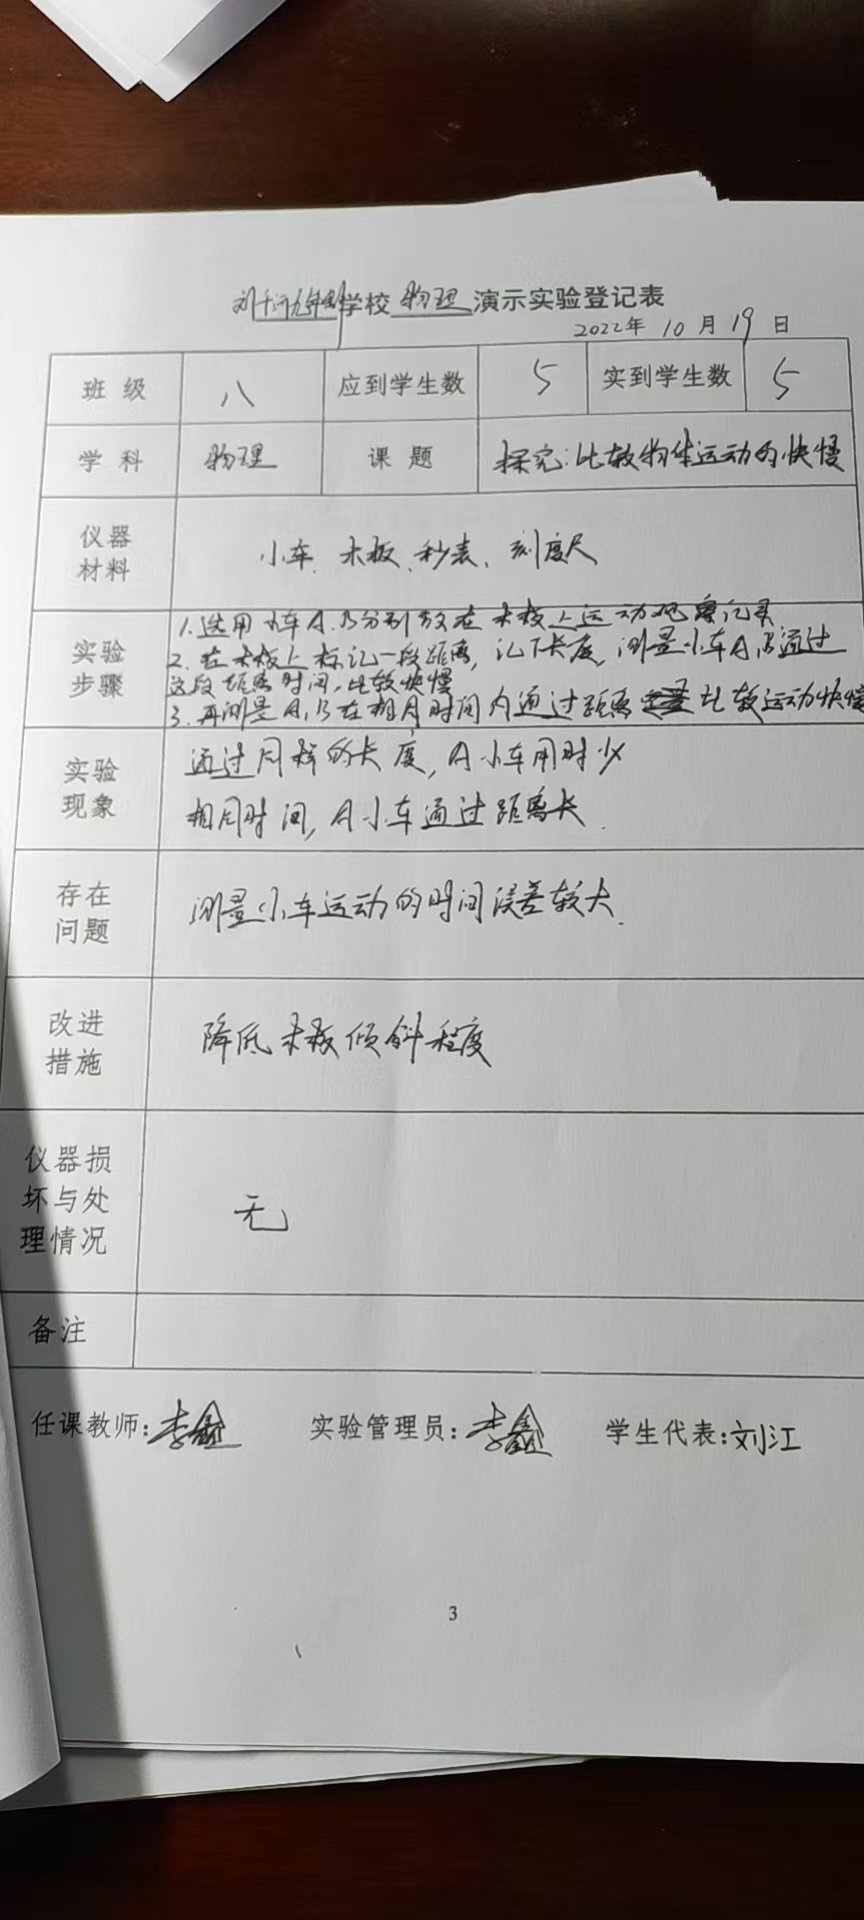 刘千沟九年制学校 物理 演示实验登记表
2022年 10月 19日
班 级 八 应到学生数 5 实到学生数 5
学 科 物理 课 题 探究:比较物体运动的快慢
仪器材料 小车、木板、秒表、刻度尺
实验步骤 1.选用小车A.B分别放在木板上运动观察记录.
2.在木板上标记一段距离,记下长度,测量小车A,B通过
这段距离时间,比较快慢
3.再测量A,B在相同时间内通过距离 比较运动快慢
实验现象 通过同样的长度,A小车用时少
相同时间,A小车通过距离长.
存在问题 测量小车运动的时间误差较大.
改进措施 降低木板倾斜程度
仪器损坏与处理情况 无
备注
任课教师:李鑫 实验管理员:李鑫 学生代表:刘江
3